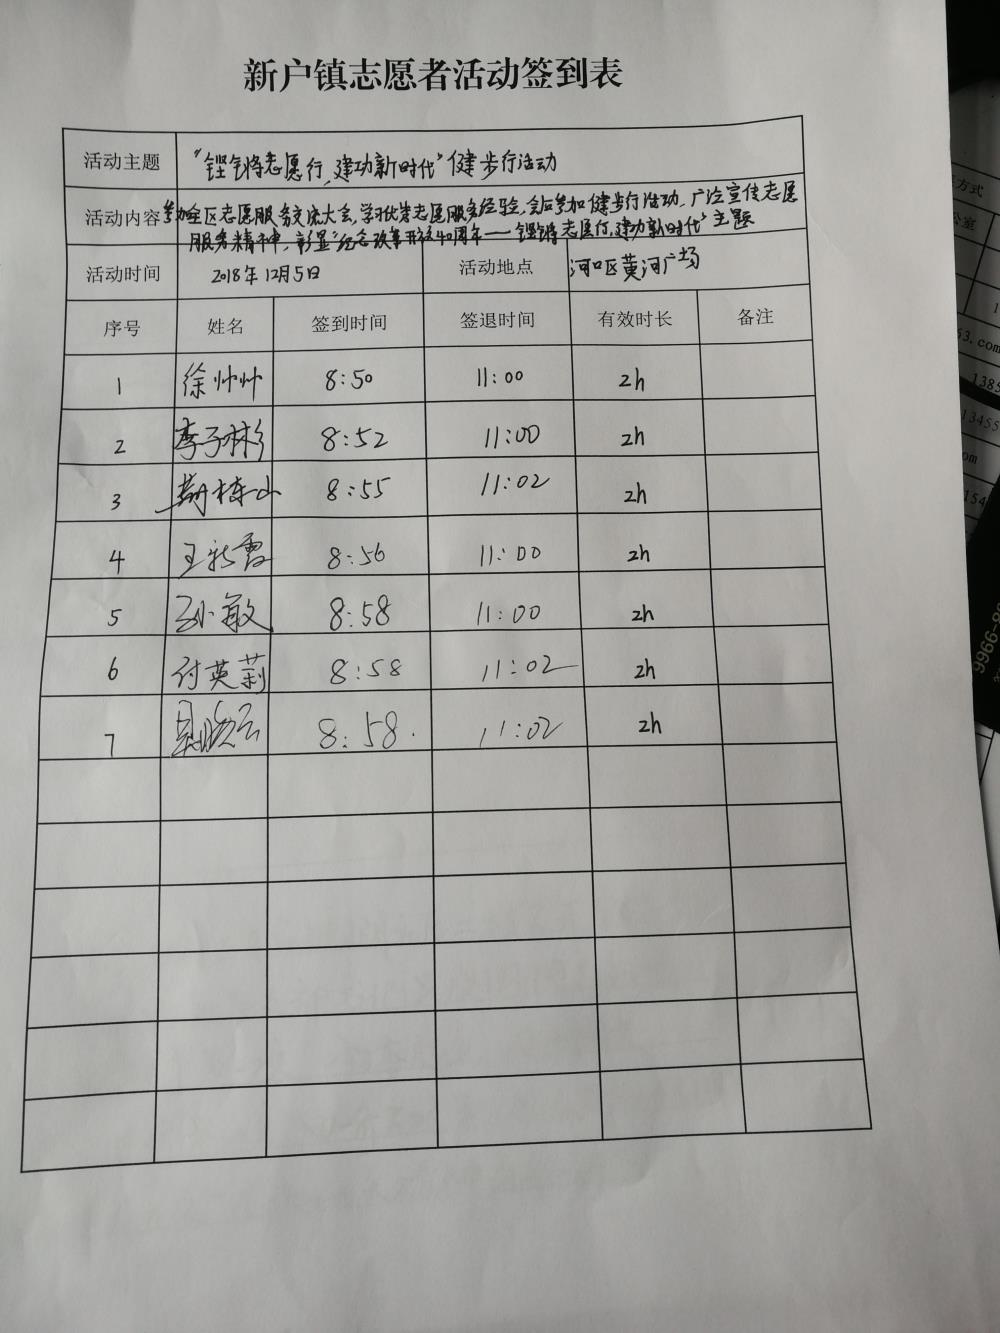 新户镇志愿者活动签到表
活动主题 “铿锵志愿行,建功新时代”健步行活动
活动内容 参加全区志愿服务交流大会,学习优秀志愿服务经验,会后参加健步行活动,广泛宣传志愿
服务精神,彰显“纪念改革开放40周年——铿锵志愿行,建功新时代”主题
活动时间 2018年12月5日 活动地点 河口区黄河广场
序号 姓名 签到时间 签退时间 有效时长 备注
1 徐帅帅 8:50 11:00 2h
2 李子彬 8:52 11:00 2h
3 8:55 11:02 2h
4 王新霞 8:56 11:00 2h
5 孙敏 8:58 11:00 2h
6 付英莉 8:58 11:02 2h
7 8:58. 11:02 2h
方式
公室
63.com
1385
13455
om
154
9966-8